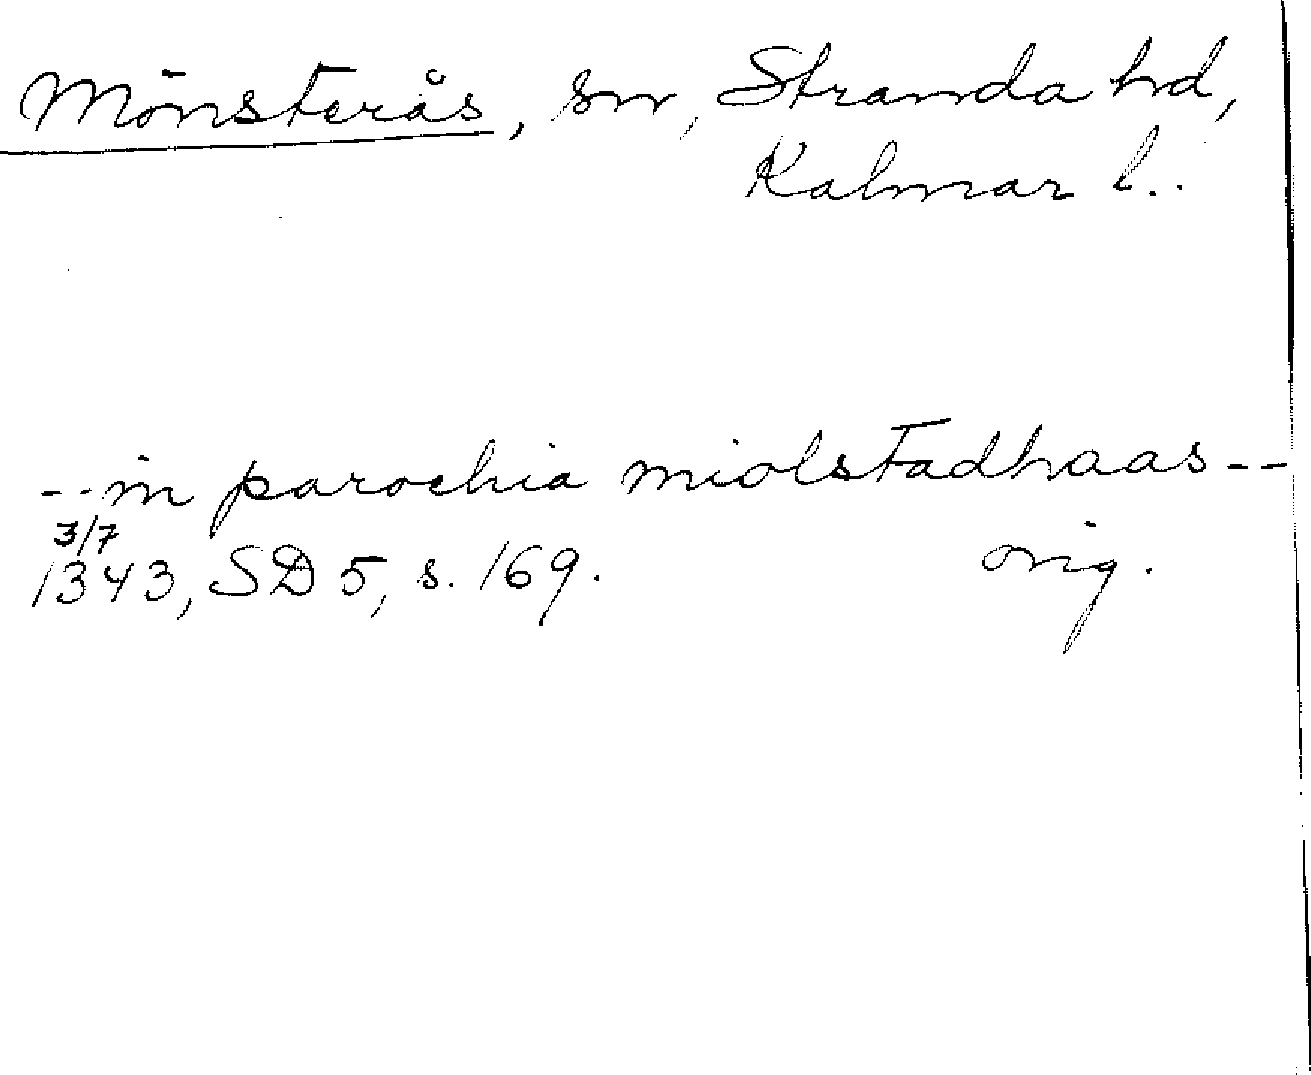 Mönsterås, sn, Stranda hd,
Kalmar l..
--in parochia miolstadhaas--
3/7
1343, SD 5, s. 169. orig.